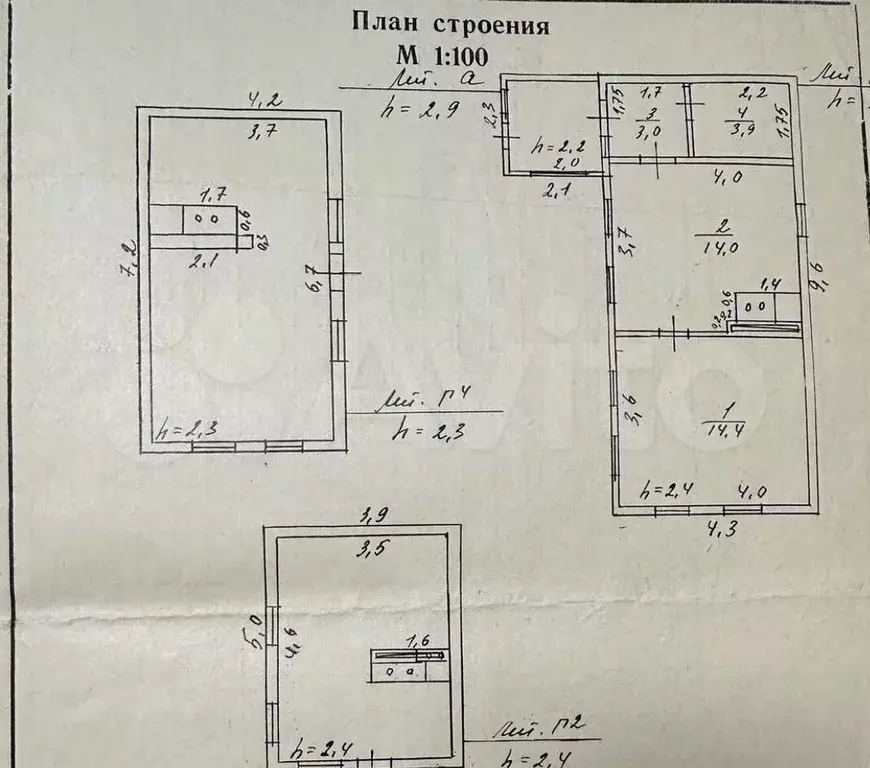 План строения
М 1:100
Лит. а
h = 2,9
Лит.
h =
4,2
3,7
1,7
0,6
0,3
2.1
7,2
6,7
h = 2,3
Лит. Г4
h = 2,3
2,3
h = 2,2
2,0
2,1
1,75
1,7
3
3,0
2,2
4
3,9
1,75
4,0
3,7
2
14,0
9,6
1,4
0,6
0,2
0,2
3,6
1
14,4
h = 2,4
4,0
4,3
3,9
3,5
5,0
4,6
1,6
h = 2,4
Лит. Г2
h = 2,4
Avito